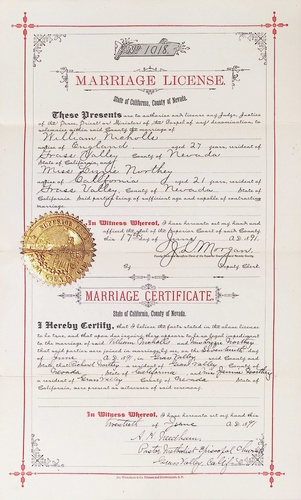 No 1018
MARRIAGE LICENSE.
State of California, County of Nevada.
These Presents are to authorize and license any Judge, Justice
of the Peace, Priest or Minister of the Gospel of any denomination, to
solemnize within said County the marriage of
William Nicholls
native of England aged 27 years, resident of
Grass Valley County of Nevada
State of California, and
Miss Northey
native of California aged 21 years, resident of
Grass Valley, County of Nevada
State of California. Said parties being of sufficient age and capable of contracting
marriage.
In Witness Whereof, I have hereunto set my hand and
affixed the Seal of the Superior Court of said County
this 17th day of June A.D. 1891
J. L. Morgan
By Deputy Clerk
SUPERIOR
MARRIAGE CERTIFICATE.
State of California, County of Nevada.
I Hereby Certify, that I believe the facts stated in the above license
to be true, and that upon due inquiry there appears to be no legal impediment
to the marriage of said William Nicholls and Miss Northey
that said parties were joined in marriage by me, on the Seventeenth day of
June A.D. 1891, in Grass Valley said County and
State; that Northey a resident of Grass Valley County of
Nevada State of California, and Miss Northey
a resident of Grass Valley County of Nevada State of
California, were present as witnesses of said ceremony.
In Witness Whereof, I have hereunto set my hand this
Twentieth of June A.D. 1891
Needham
Pastor Methodist Episcopal Church
Grass Valley, California